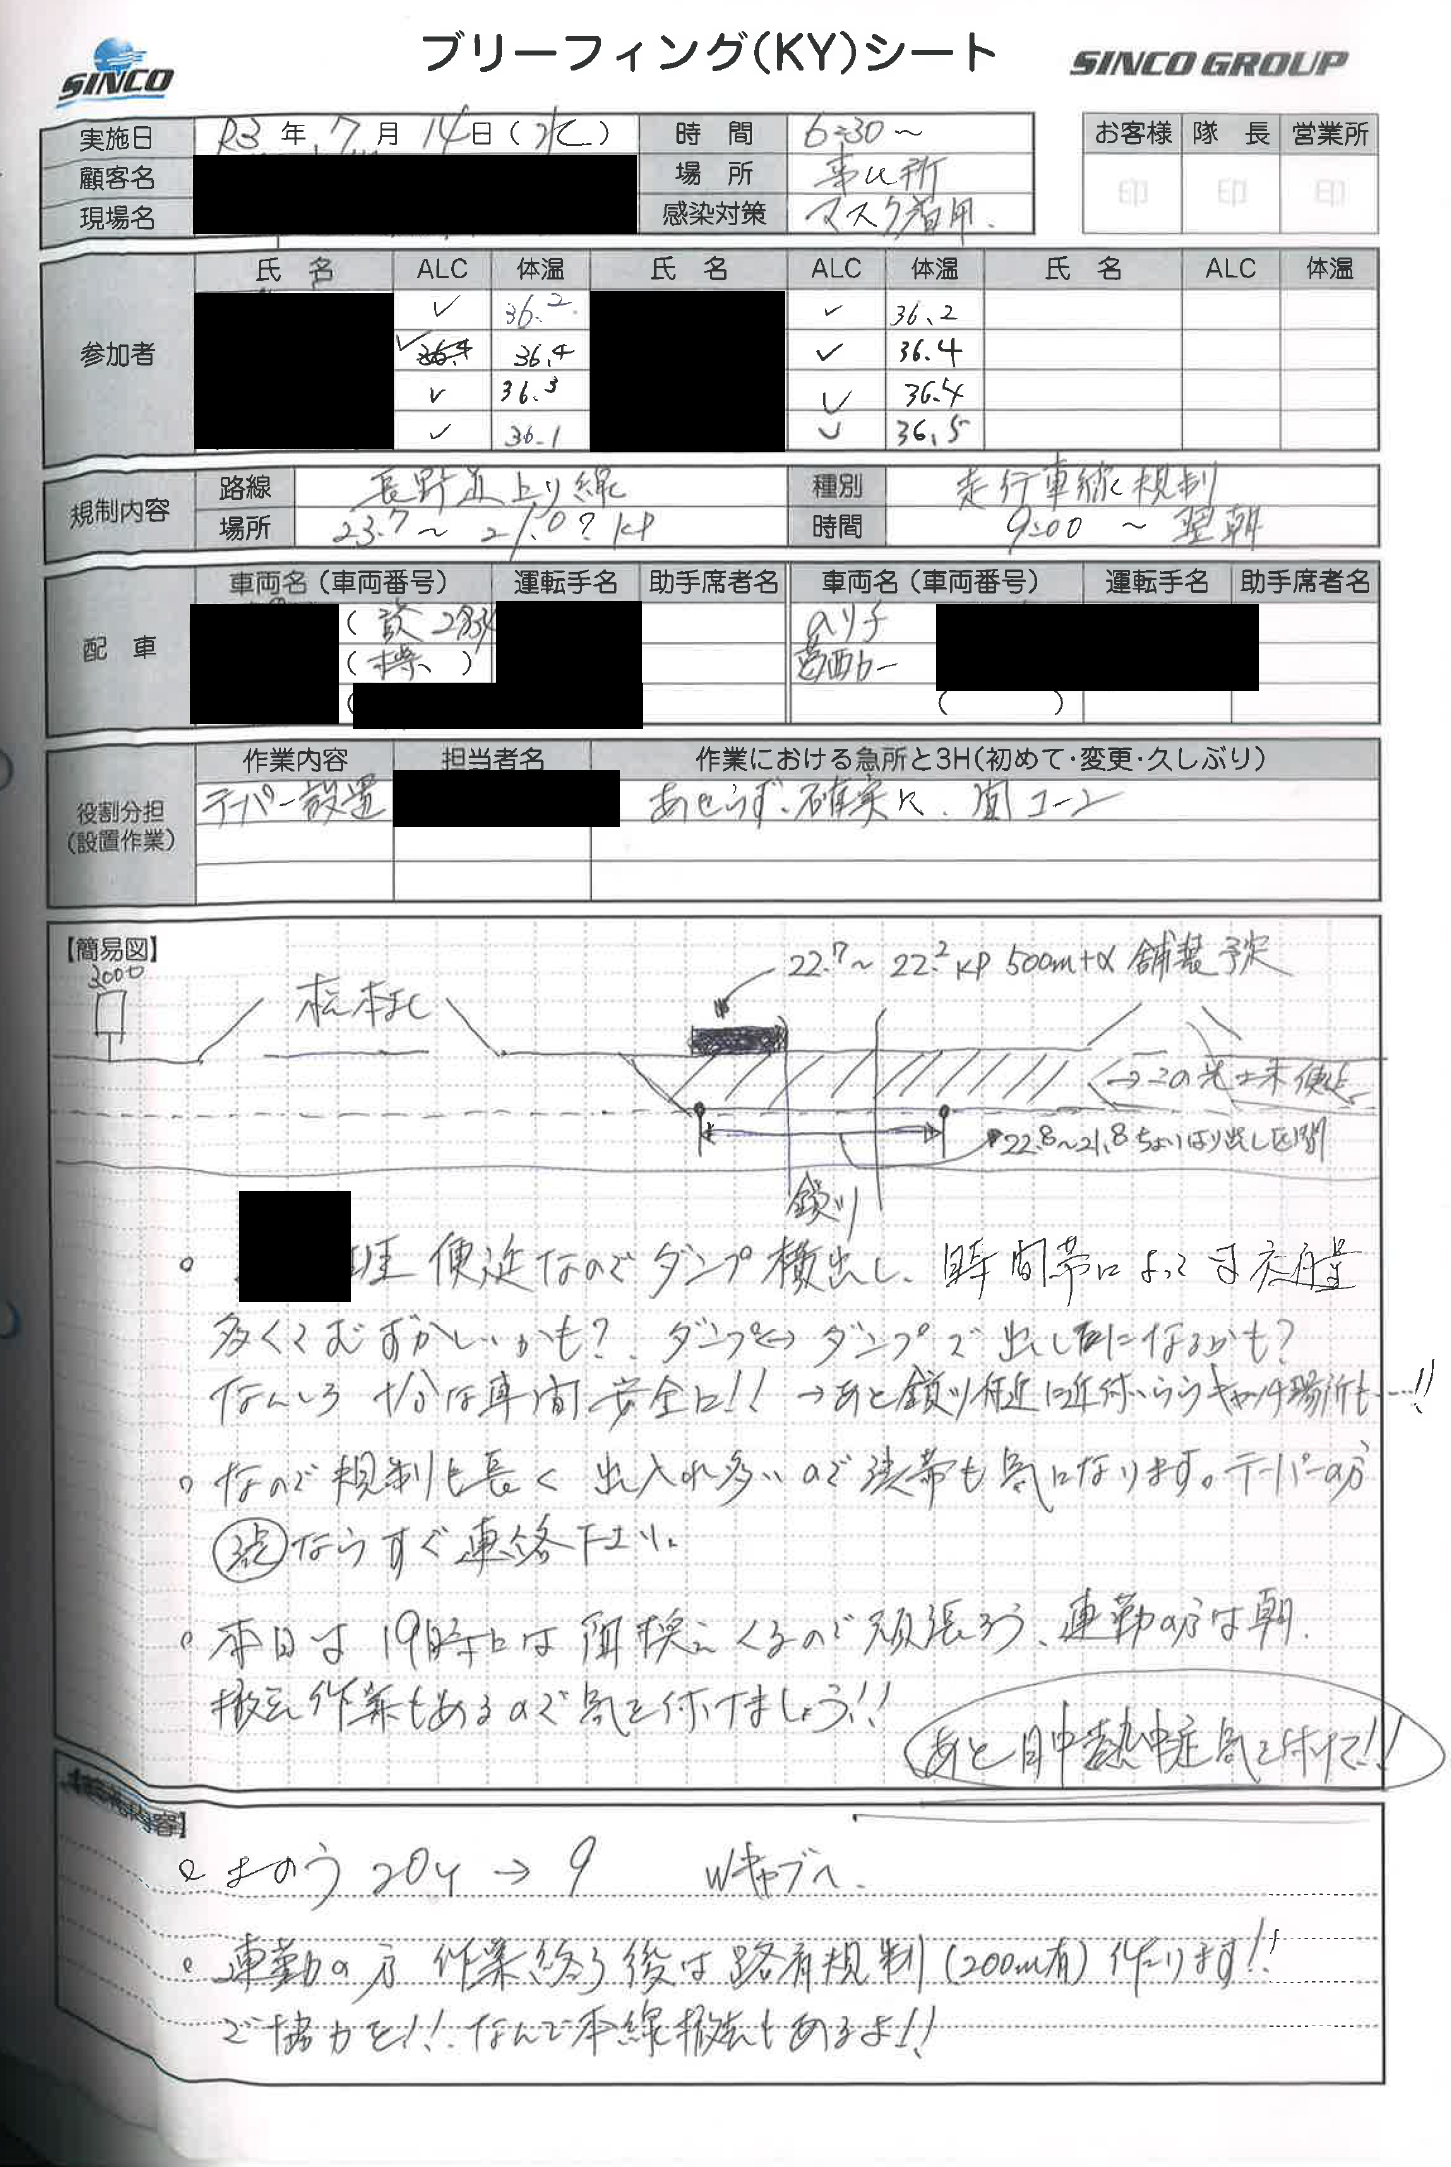 SINCO
ブリーフィング(KY)シート
SINCO GROUP
実施日 R3年 7月 14日(水) 時間 6:30～
顧客名 場所 事ム所
現場名 感染対策 マスク着用.
お客様 隊長 営業所
印 印 印
氏名 ALC 体温 氏名 ALC 体温 氏名 ALC 体温
参加者
✓ 36.2 ✓ 36.2
✓ 36.4 36.4 ✓ 36.4
✓ 36.3 ✓ 36.4
✓ 36.1 ✓ 36.5
規制内容
路線 長野道上り線 種別 走行車線規制
場所 23.7～21.0? KP 時間 9:00 ～ 翌朝
配車
車両名(車両番号) 運転手名 助手席者名 車両名(車両番号) 運転手名 助手席者名
(設 ) のり子
(標、) 葛西カー
( ( )
役割分担
(設置作業)
作業内容 担当者名 作業における急所と3H(初めて・変更・久しぶり)
テーパー設置 あせらず、確実に、
【簡易図】
3000
松本
22.7～22.2KP 500m+α 舗装予定
→この先は未使
22.8～21.8 ちょいはり出し区間
鎖ツリ
。 班 なのでダンプ横出し、時間帯によっては交通量
多くてむずかしいかも?. ダンプ↔ダンプで出し になるかも?
なんしろ十分な車間 安全に!! →あと鎖ツリ付近に近付いたらキャッチ場所も…!!
。なので規制も長く 出入れ多いので も気になります。テーパーの方
ならすぐ連絡下さい。
。本日は 19時には くるので頑張ろう、連勤の方は朝.
撤去作業もあるので気を付けましょう!!
あと日中熱中症気を付けて!!
内容】
。きのう 204 → 9 Wキャブへ.
。連勤の方 作業終了後は路肩規制(200m有) 作ります!!
ご協力を!! なんで本線撤去もあるよ!!